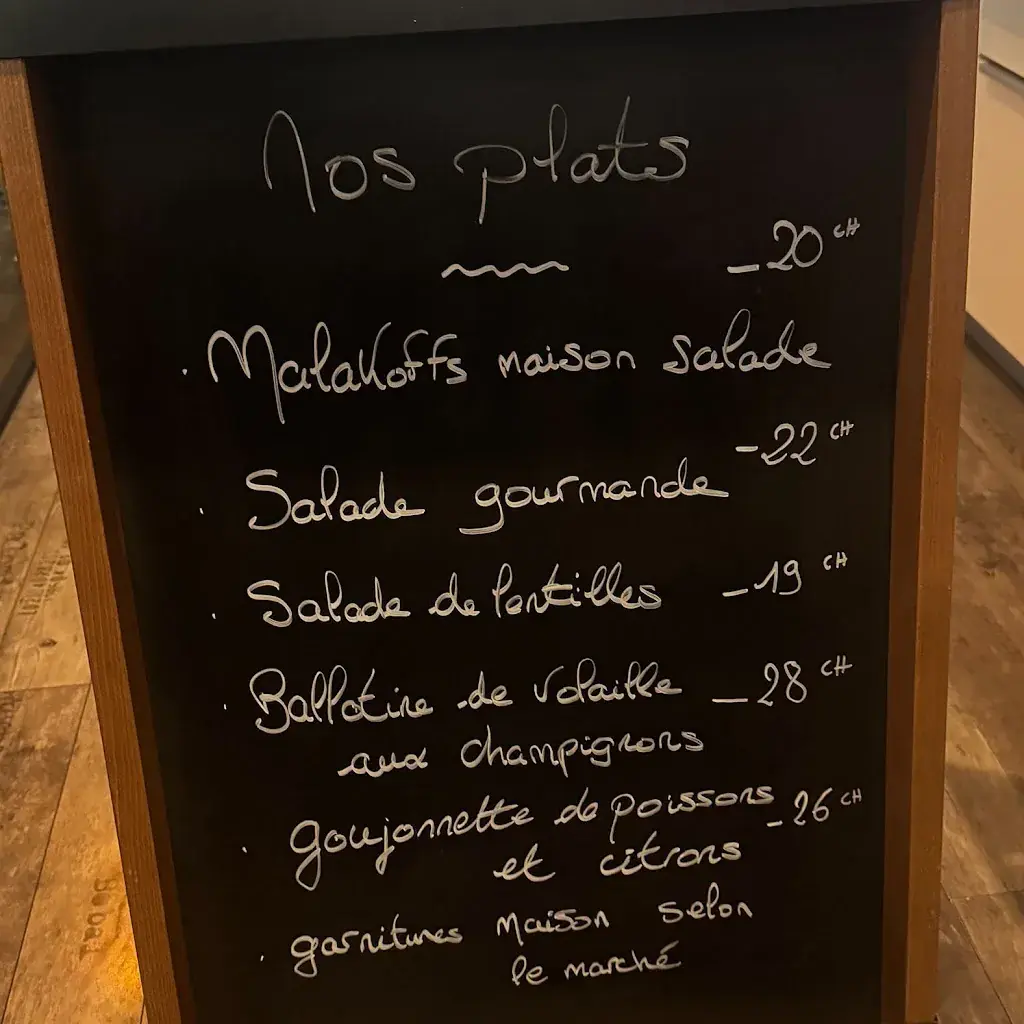 Nos plats
- 20 CH
. Malakoffs maison salade
- 22 CH
. Salade gourmande
. Salade de lentilles - 19 CH
. Ballotine de volaille - 28 CH
aux champignons
. goujonnette de poissons - 26 CH
et citrons
. garnitures Maison selon
le marché